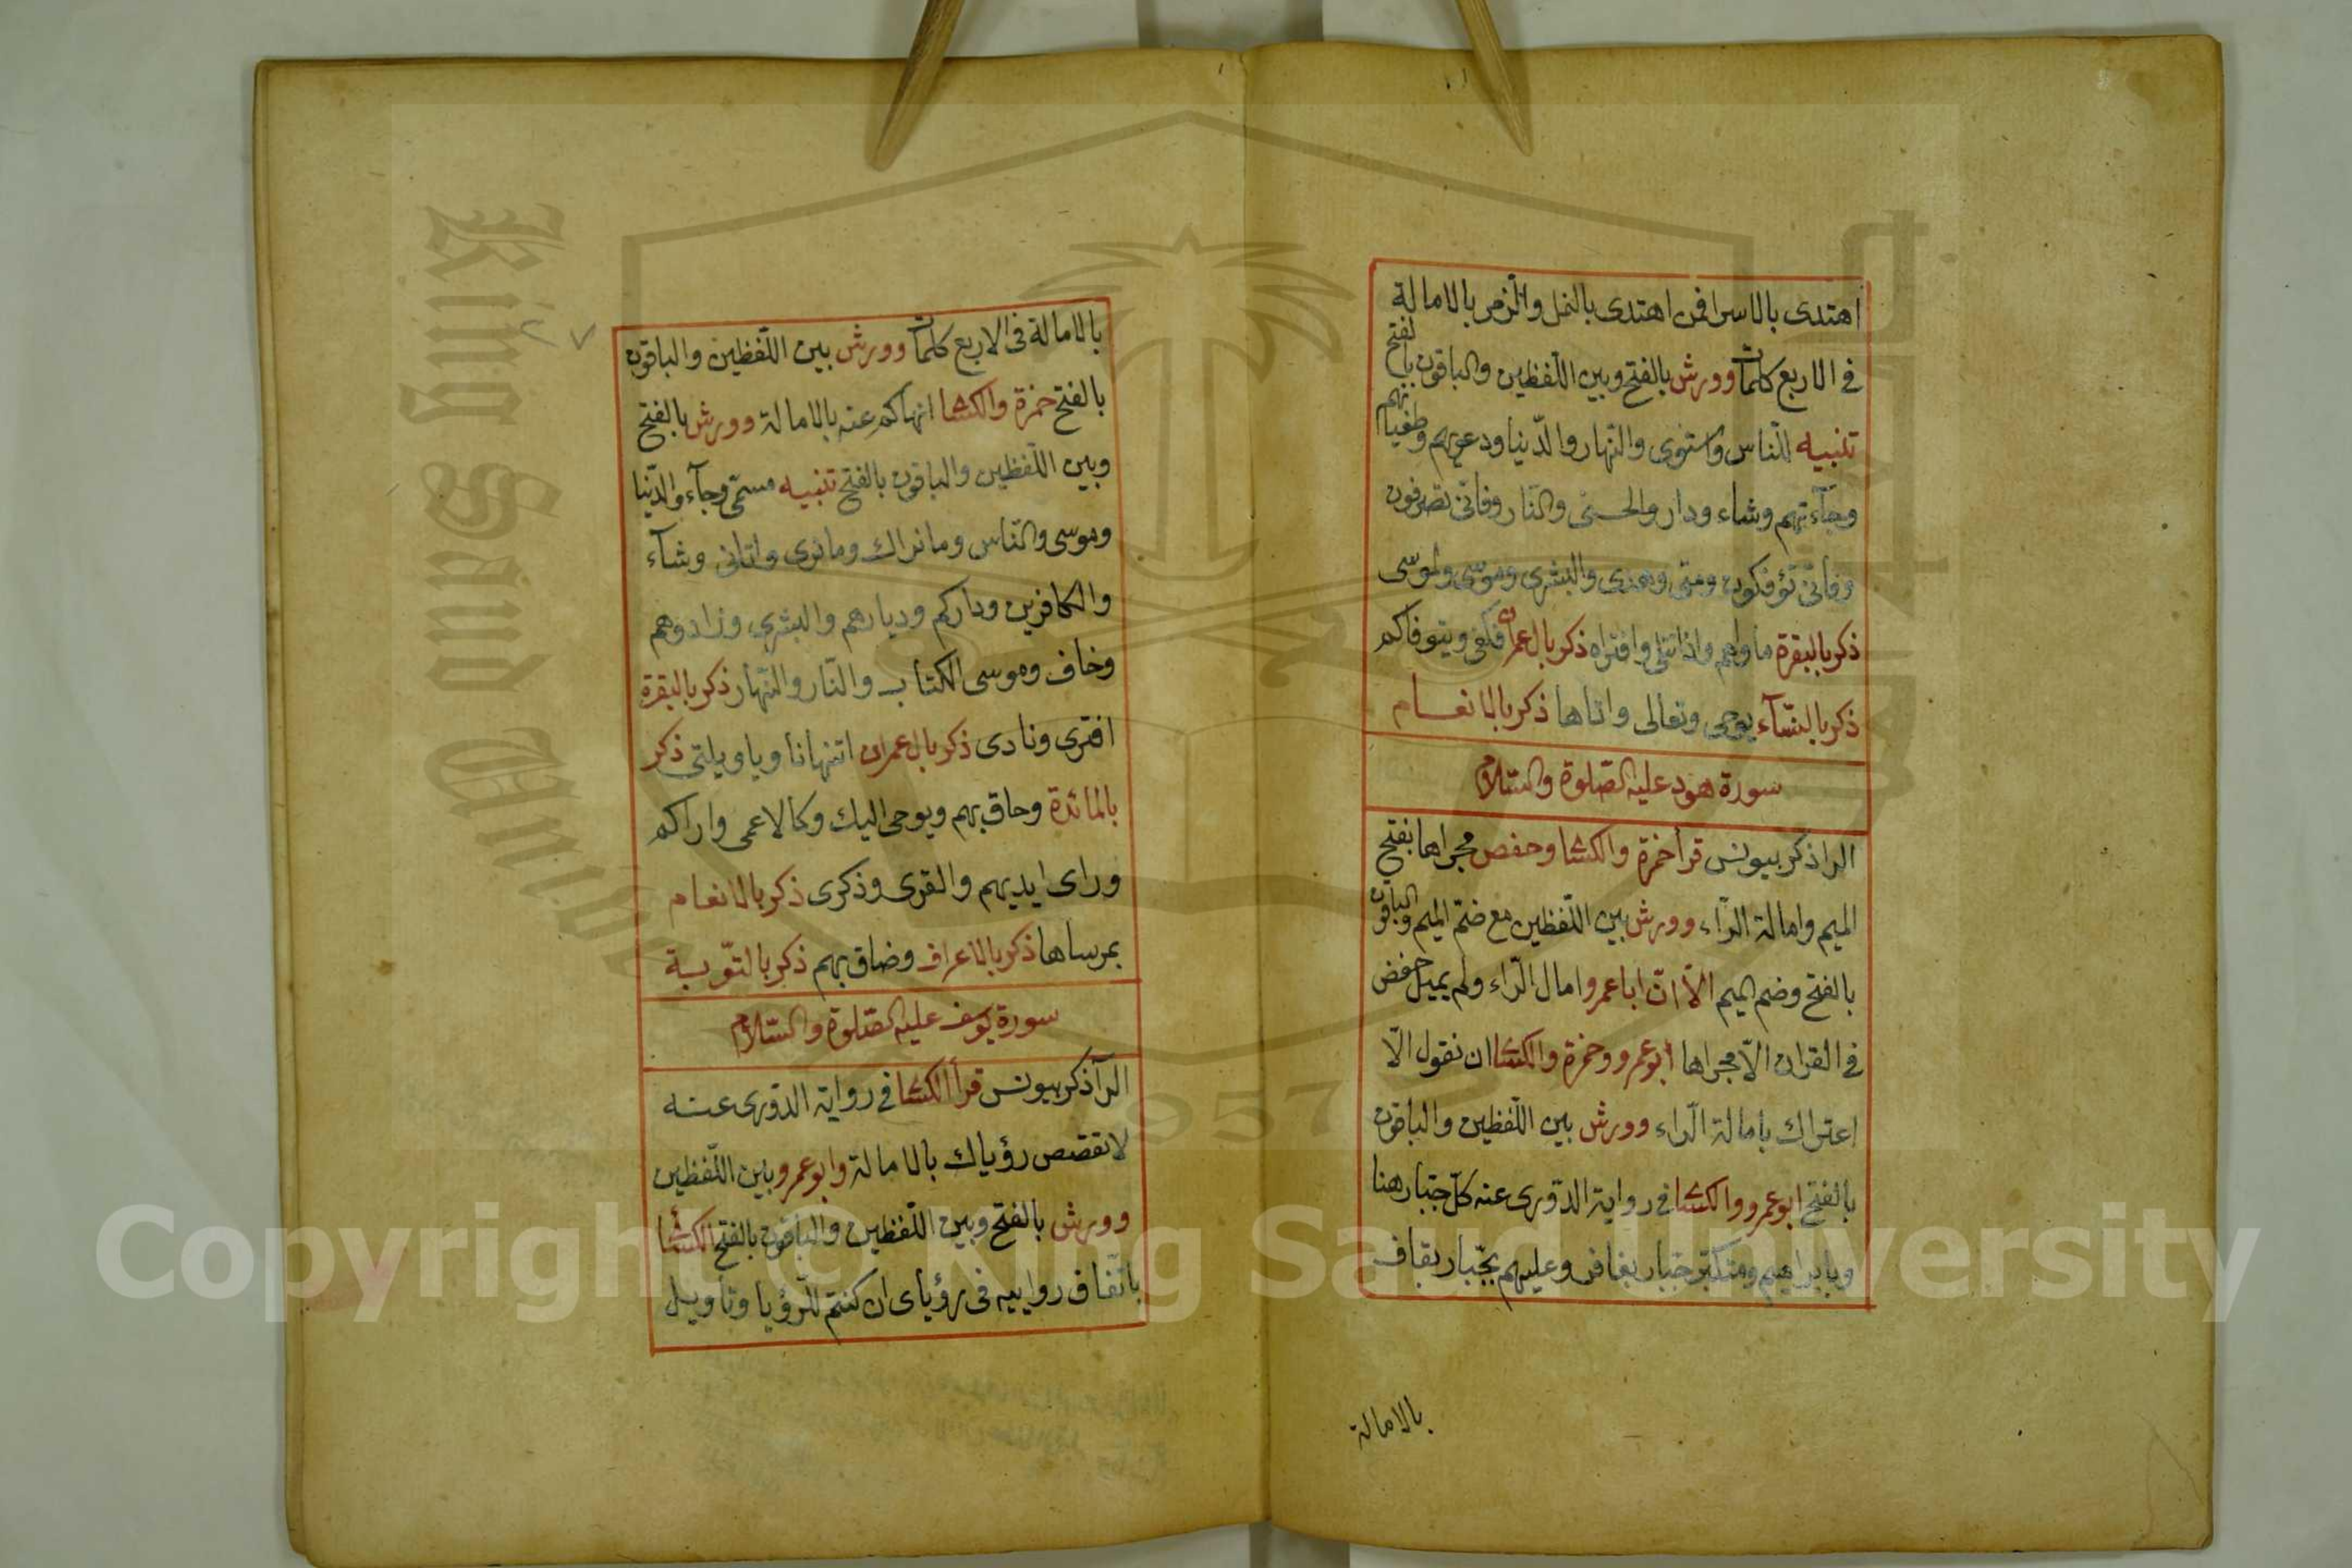 اهتدى بالاسرا فمن اهتدى بالنمل والزمر بالامالة
في الاربع كلمات وورش بالفتح وبين اللفظين والباقون بالفتح
تنبيه للناس واستوى والنهار والدنيا ودعويهم وطغيانهم
وجآءتهم وشاء ودار والحسنى والنار وفانى تصرفون
وفانّى تؤفكون ومتى وهدى والبشرى وموسى ولموسى
ذكر بالبقرة ماويهم واذا تتلى وافتراه ذكر بال عمران فكفى ويتوفاكم
ذكر بالنسآء يوحى وتعالى واتاها ذكر بالانعام
سورة هود عليه الصلوة والسلام
الر اذكر بيونس قرأ حمزة والكسا وحفص مجراها بفتح
الميم وامالة الرّاء وورش بين اللّفظين مع ضمّ الميم والباقون
بالفتح وضم الميم الّا انّ ابا عمرو امال الرّاء ولم يميل حفص
في القران الّا مجراها ابو عمرو وحمزة والكسا ان نقول الّا
اعتراك بامالة الرّاء وورش بين اللّفظين والباقون
بالفتح ابو عمرو والكسا في رواية الدّورى عنه كلّ جبّار هنا
وبابراهيم ومتكبّر جبّار بغافر وعليهم بجبّار بقاف
بالامالة
٢٧
بالامالة في الاربع كلمات وورش بين اللّفظين والباقون
بالفتح حمزة والكسا انهاكم عنه بالامالة وورش بالفتح
وبين اللّفظين والباقون بالفتح تنبيه مسمّى وجآء والدّنيا
وموسى والناس وما نراك وما نرى واتانى وشآء
والكافرين وداركم وديارهم والبشرى وزادوهم
وخاف وموسى الكتاب والنّار والنّهار ذكر بالبقرة
افترى ونادى ذكر بال عمران اتنهانا ويا ويلتى ذكر
بالمائدة وحاق بهم ويوحى اليك وكالاعمى واراكم
وراى ايديهم والقرى وذكرى ذكر بالانعام
بمرساها ذكر بالاعراف وضاق بهم ذكر بالتّوبة
سورة يوسف عليه الصّلوة والسّلام
الرآ ذكر بيونس قرأ الكسا في رواية الدّورى عنه
لا تقصص رؤياك بالامالة وابو عمرو بين اللّفظين
وورش بالفتح وبين اللّفظين والباقون بالفتح الكسا
باتّفاق رواييه في رؤياى ان كنتم للرّؤيا وتأويل
King Saud University
1957
Copyright © King Saud University